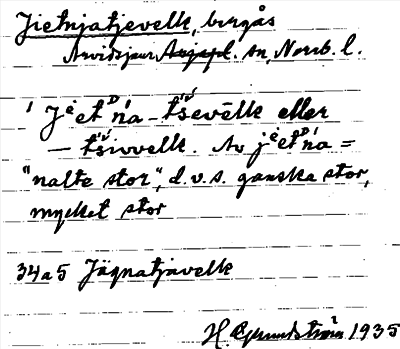 Jietnjatjevelk, bergås
Arvidsjaur sn, Norrb. l.
' jėetᴰńa-tševēlk eller
— tšivvelk. Av jėetᴰńa =
"nalte stor", d.v.s. ganska stor,
mycket stor
34a5 Jägnatjavelk
H. Grundström 1935